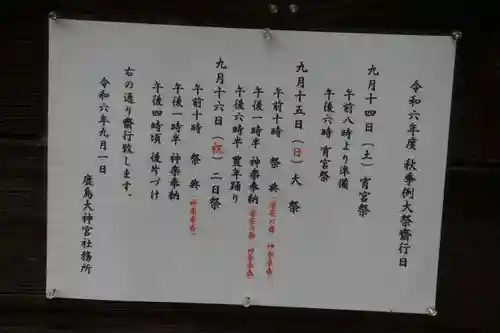 令和六年度 秋季例大祭齋行日
九月十四日（土）宵宮祭
午前八時より準備
午後六時 宵宮祭
九月十五日（日）大祭
午前十時 祭典
午後一時半 神楽奉納
午後六時半 豊年踊り
九月十六日（祝）二日祭
午前十時 祭典
午後一時半 神楽奉納
午後四時頃 後片づけ
右の通り齋行致します。
令和六年九月一日
鹿島大神宮社務所